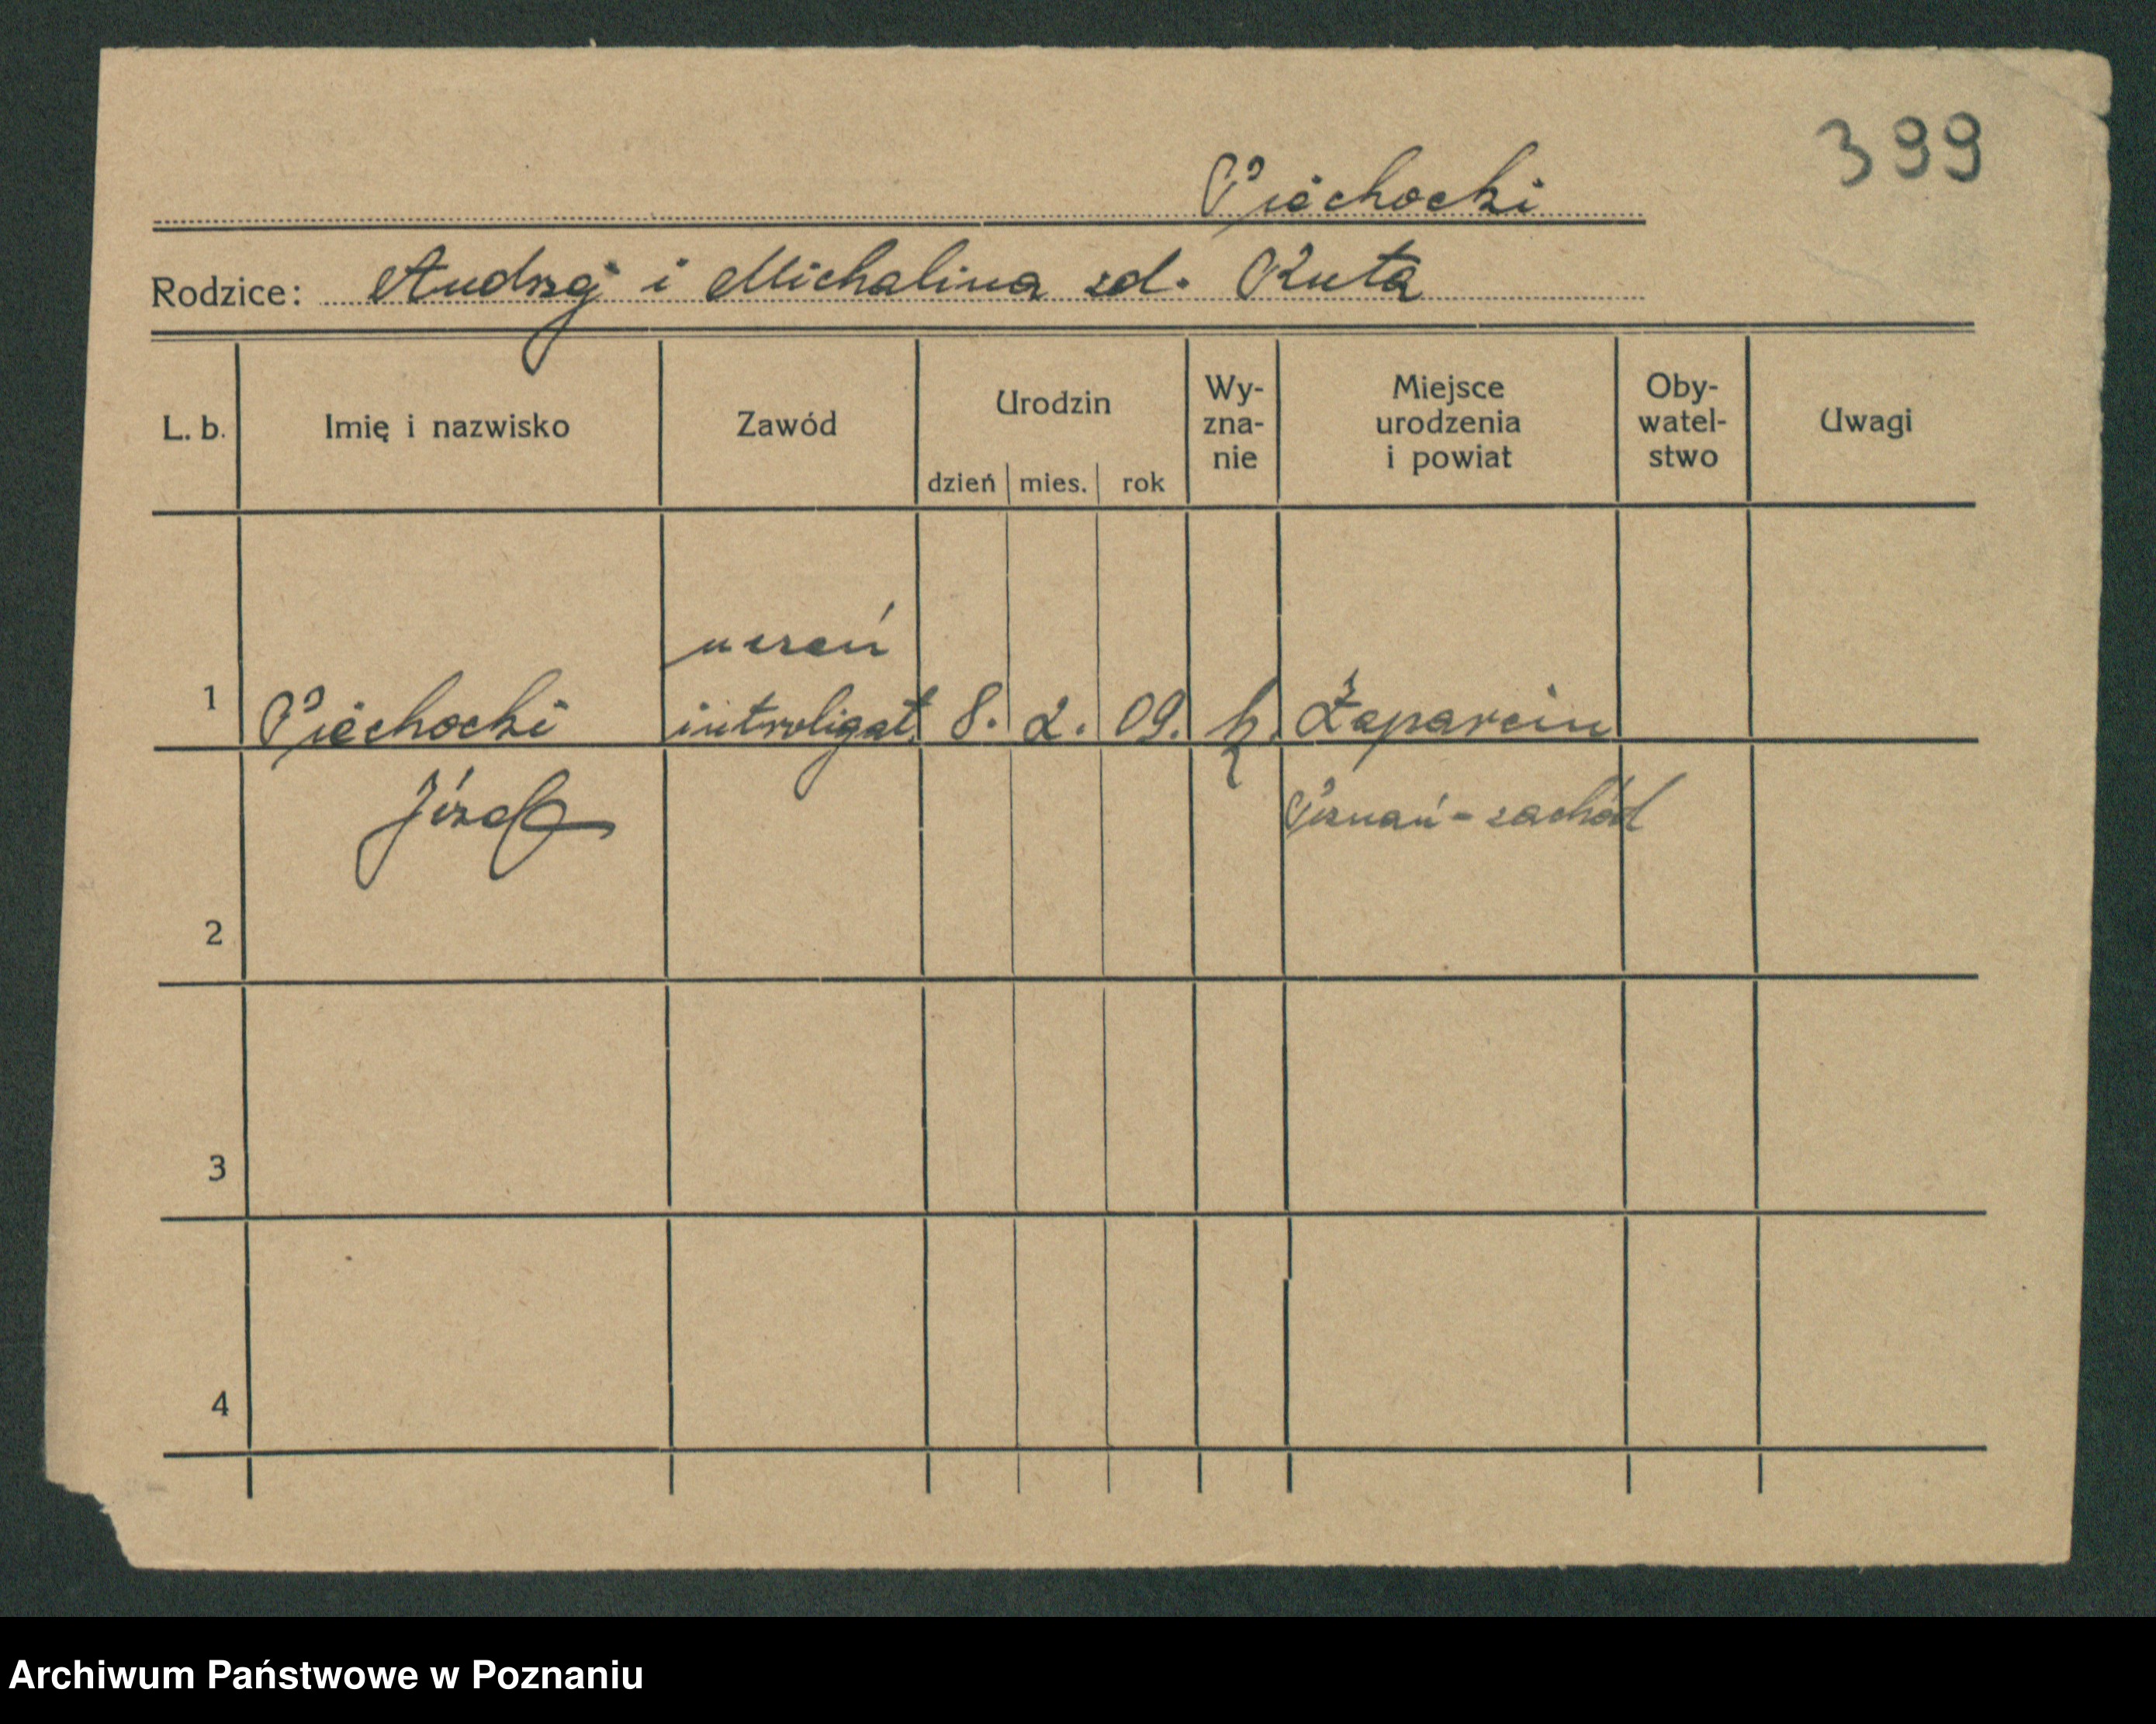 399
Piechocki
Rodzice: Andrzej i Michalina zd. Kuta
L. b. Imię i nazwisko Zawód Urodzin dzień mies. rok Wy- zna- nie Miejsce urodzenia i powiat Oby- watel- stwo Uwagi
uczeń
1 Piechocki introligat. 8. 2. 09. k.
Józef Poznań-zachód
2
3
4
Archiwum Państwowe w Poznaniu